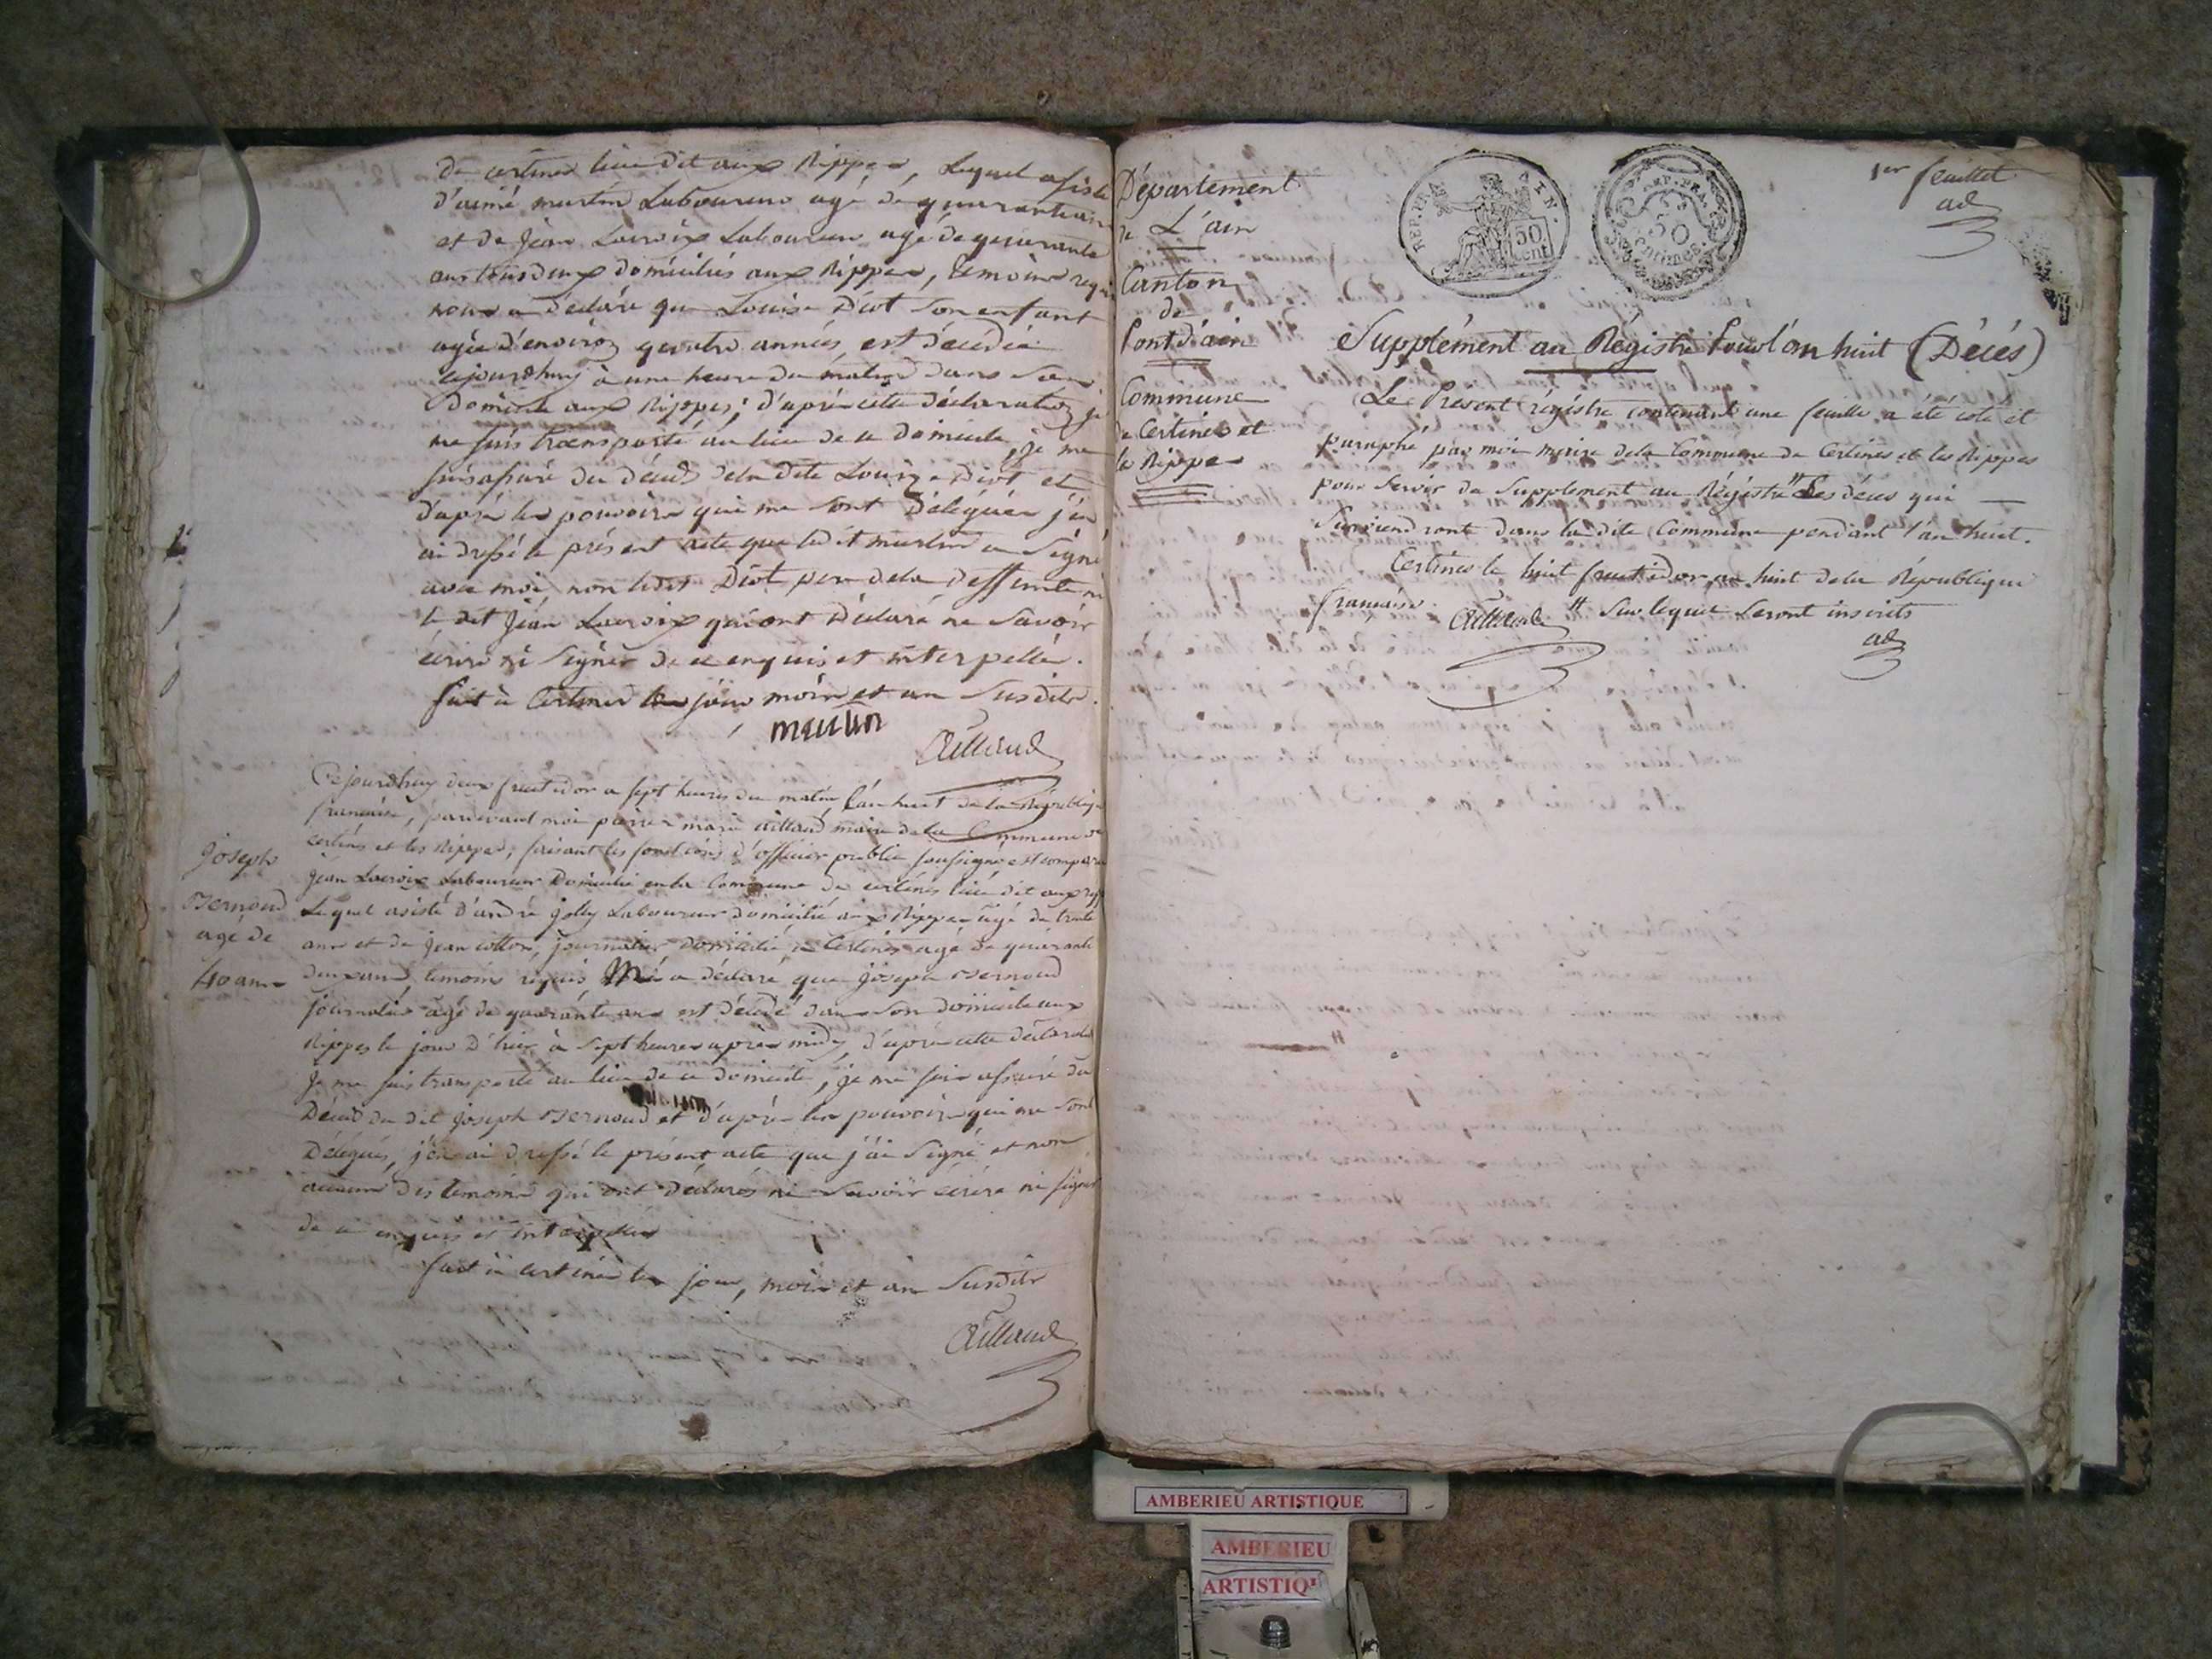 de certines lieu dit aux Rippes, Lequel assisté
d'aimé martin Laboureur agé de quarante ans
et de Jean Lacroix Laboureur agé de quarante
ans tous deux domiciliés aux Rippes, témoins requis
nous a déclaré que Louise Diot son enfant
agée d'environ quatre années est décédée
aujourdhuy à une heure du matin dans son
domicile aux Rippes; d'après cette déclaration je
me suis transporté au lieu de ce domicile, je me
suis assuré du décès dela dite Louise Diot et
d'après les pouvoirs qui me sont délégués j'en
ai dressé le présent acte que ledit martin a Signé
avec moi non ledit Diot pere dela deffunte ni
le dit Jean Lacroix qui ont déclaré ne Savoir
écrire ni Signer de ce enquis et interpellés.
fait à Certines les jour mois et an Susdits.
martin
Aillaud
Joseph
Bernoud
agé de
40 ans
Cejourdhuy deux fructidor a sept heures du matin l'an huit de la République
française, pardevant moi pierre marie aillaud maire dela Commune de
certines et les Rippes, faisant les fonctions d'officier public soussigné, est comparu
Jean Lacroix Laboureur Domicilié en la Commune de certines lieu dit aux Rippes
Lequel assisté d'andré jolly Laboureur domicilié aux Rippes agé de trente
ans et de Jean cotton, journalier domicilié à Certines agé de quarante
deux ans, temoins requis, M'a déclaré que joseph Bernoud
journalier agé de quarante ans est décédé dans son domicile aux
Rippes le jour d'hier à Sept heures après midy, d'après cette déclaration
Je me suis transporté au lieu de ce domicile, je me suis assuré du
Décès du dit joseph Bernoud et d'après les pouvoirs qui me sont
Délégués, j'en ai dressé le présent acte que j'ai Signé et non
aucun des temoins qui ont déclarés ne Savoir écrire ni signer
de ce enquis et interpellés
fait à certines les jour, mois et an Susdits
Aillaud
Département
de L'ain
Canton
de
Pont d'ain
Commune
de Certines et
les Rippes
REP. FRA
50
cent
50
Centimes
1er feuillet
ad
Supplément au Régistre Pour l'an huit (Décés)
Le Present régistre contenant une feuille a été coté et
paraphé par moi maire dela Commune de Certines et les Rippes
pour Servir de Supplement au Régistre # Les déces qui
Surviendront dans ladite Commune pendant l'an huit.
Certines le huit fructidor an huit dela République
française.
Aillaud
# Sur lequel Seront inscrits
ad
AMBERIEU ARTISTIQUE
AMBERIEU
ARTISTIQ